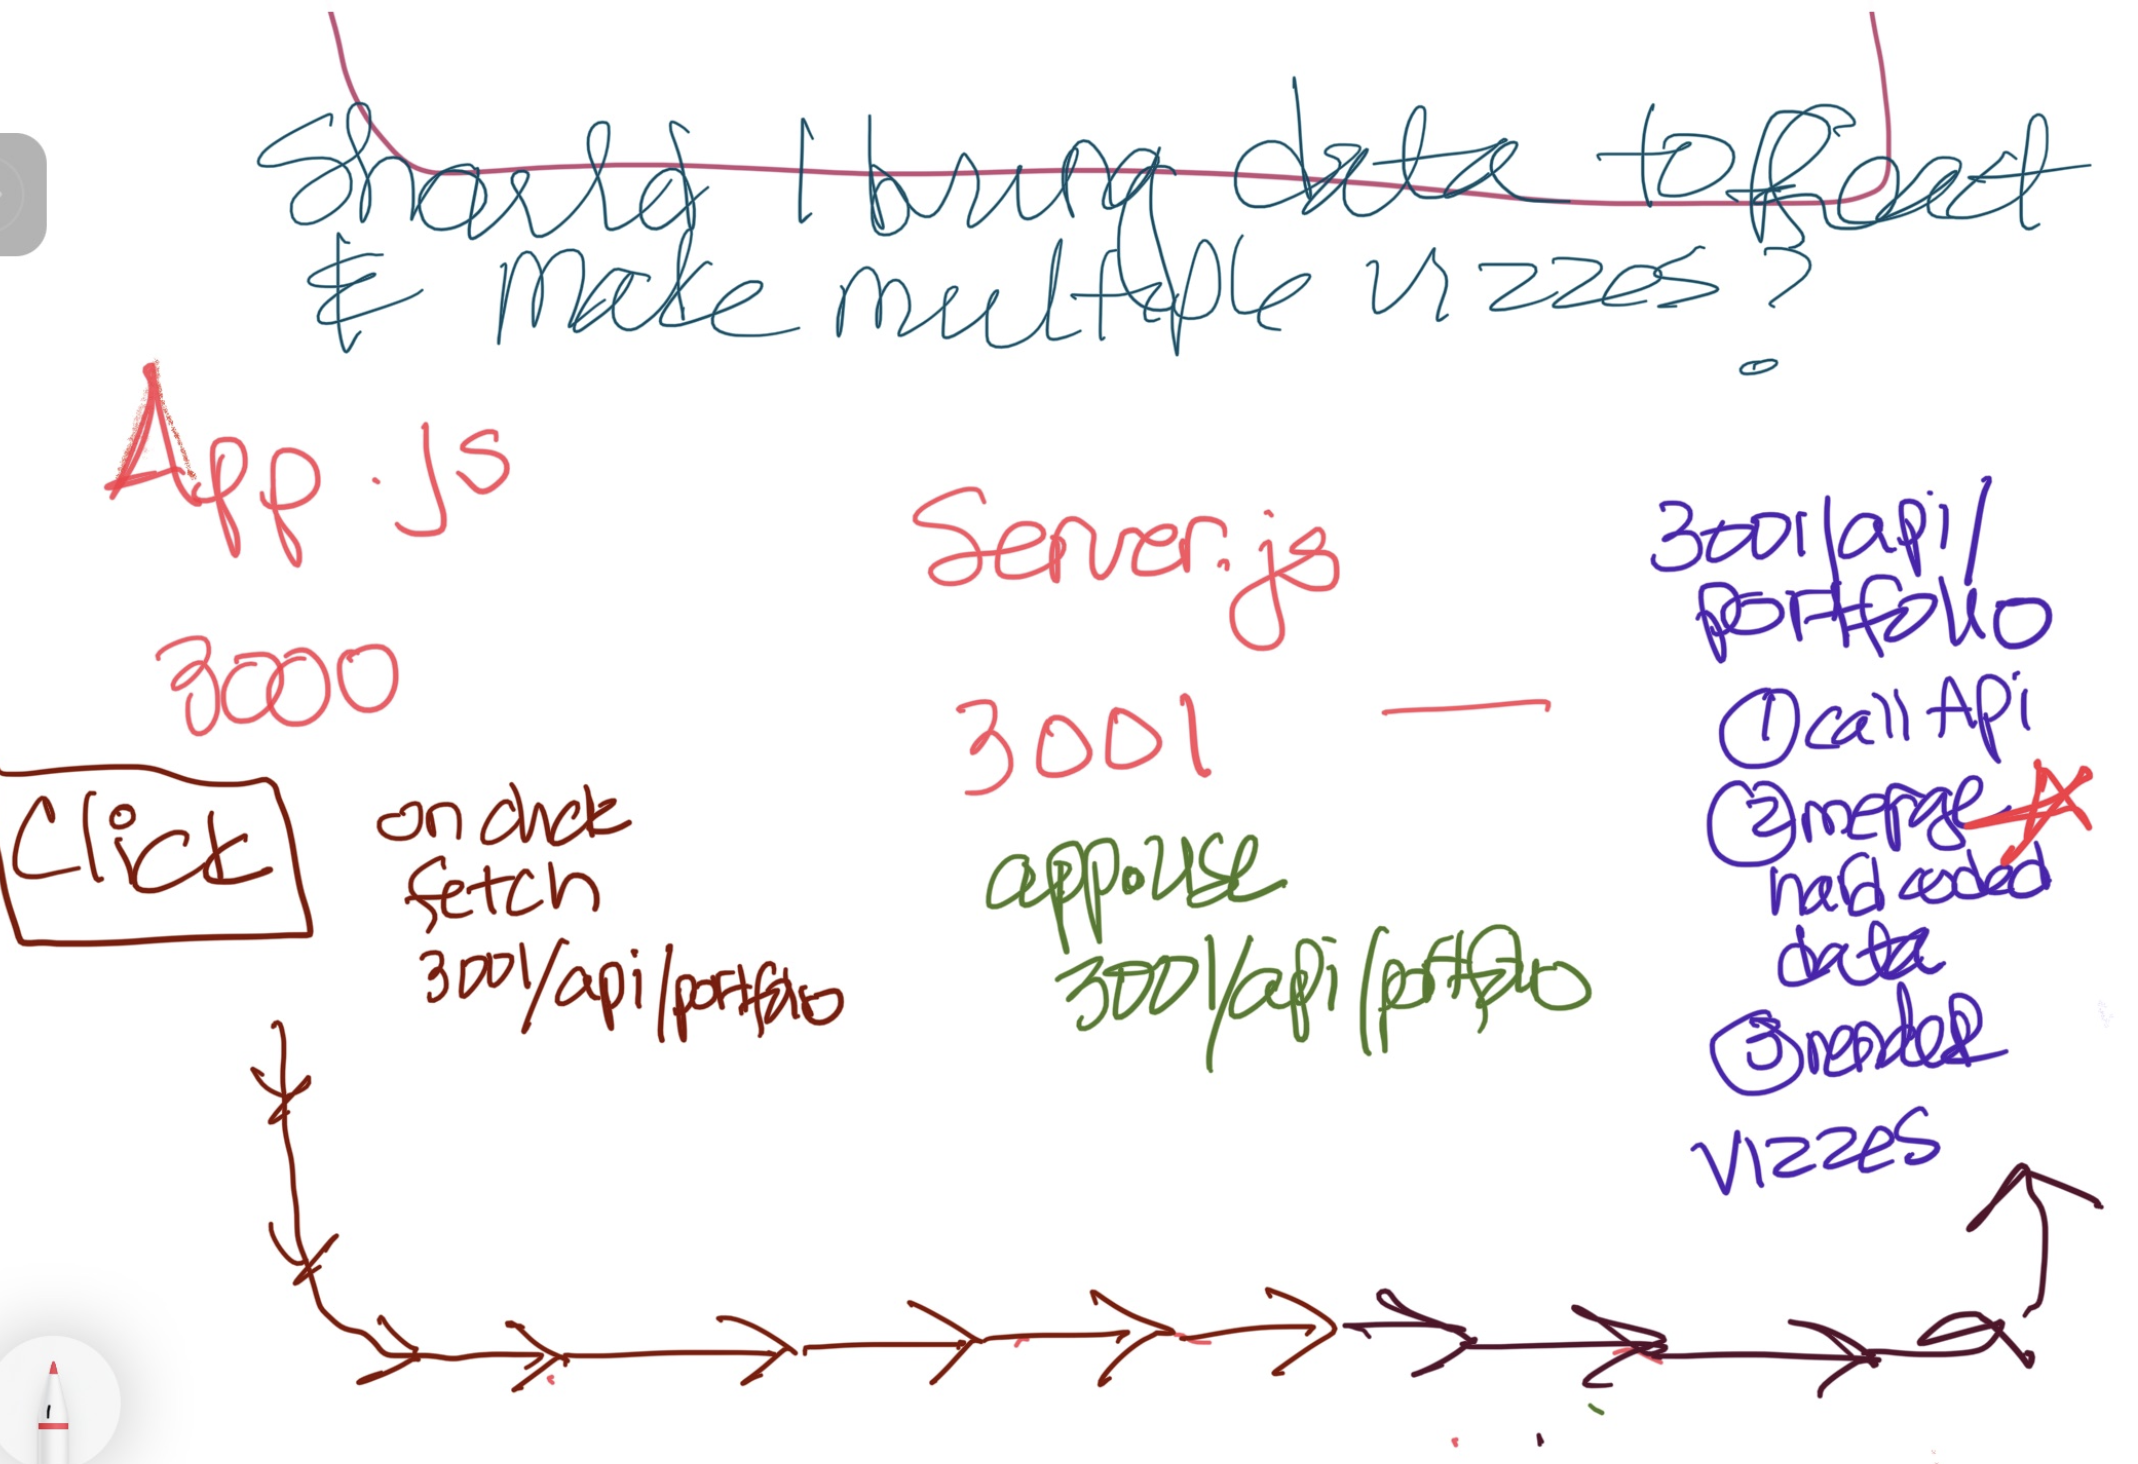 Should I bring data to front
& make multiple vizzes?
App.js
3000
Click
on click
fetch
3001/api/portfolio
Server.js
3001 —
app.use
3001/api/portfolio
3001/api/
portfolio
① call API
② merge
hard coded
data
③ render
vizzes